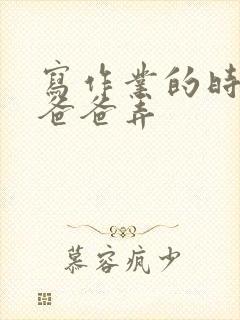 寫作業的時
爸爸弄
慕容疯少